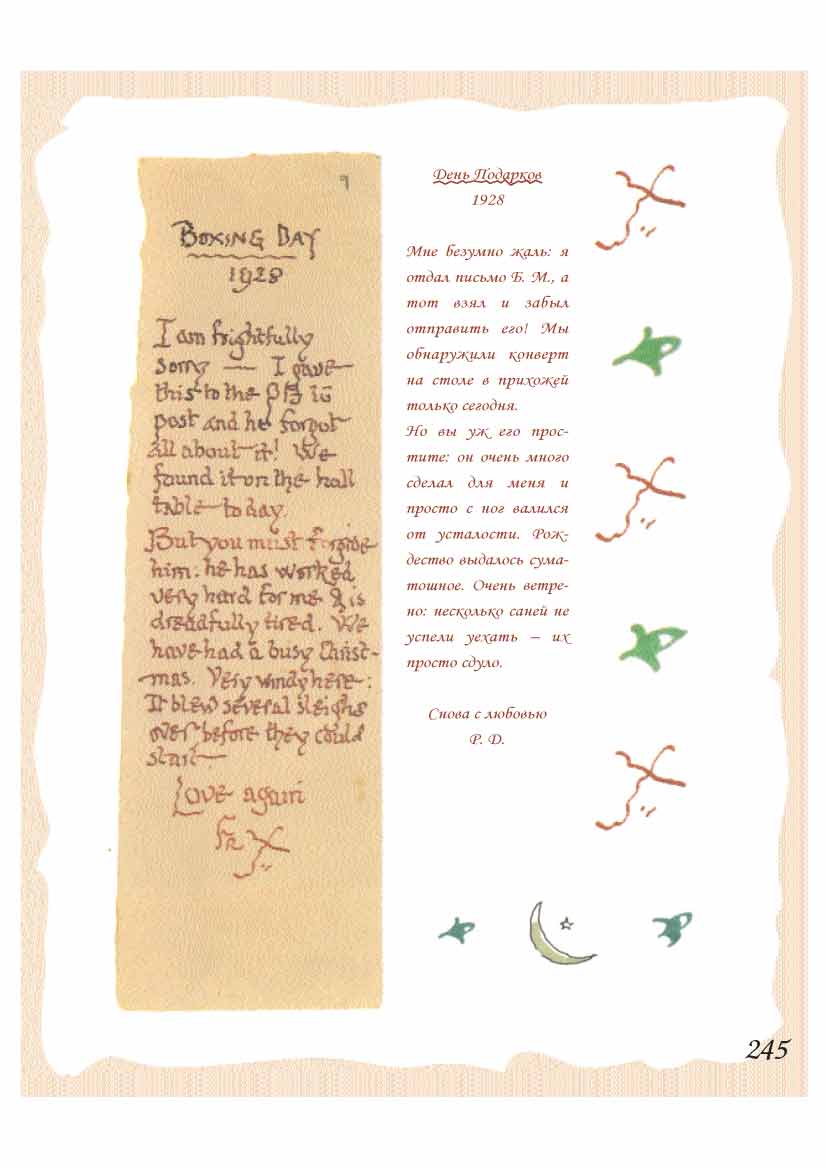 9
BOXING DAY
1928
I am frightfully
sorry — I gave
this to the PB to
post and he forgot
all about it! We
found it on the hall
table — to day.
But you must forgive
him: he has worked
very hard for me & is
dreadfully tired. We
have had a busy Christ-
mas. Very windy here:
It blew several sleighs
over before they could
start —
Love again
Fr X
День Подарков
1928
Мне безумно жаль: я
отдал письмо Б. М., а
тот взял и забыл
отправить его! Мы
обнаружили конверт
на столе в прихожей
только сегодня.
Но вы уж его прос-
тите: он очень много
сделал для меня и
просто с ног валился
от усталости. Рож-
дество выдалось сума-
тошное. Очень ветре-
но: несколько саней не
успели уехать – их
просто сдуло.
Снова с любовью
Р. Д.
245